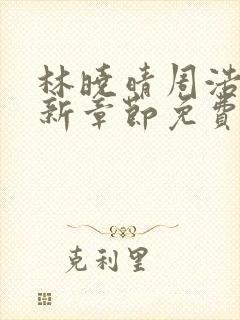 林曉晴周浩
新章節免費
克利里